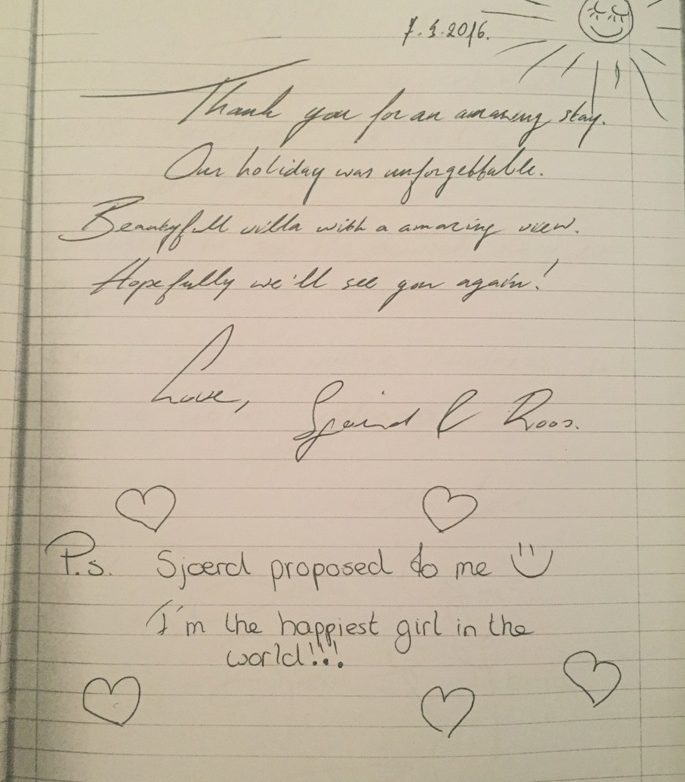 7.9.2016.
Thank you for an amazing stay.
Our holiday was unforgettable.
Beautyfull villa with a amazing view.
Hopefully we'll see you again!
Love, Sjoerd & Roos.
P.s. Sjoerd proposed to me
I'm the happiest girl in the
world!!!